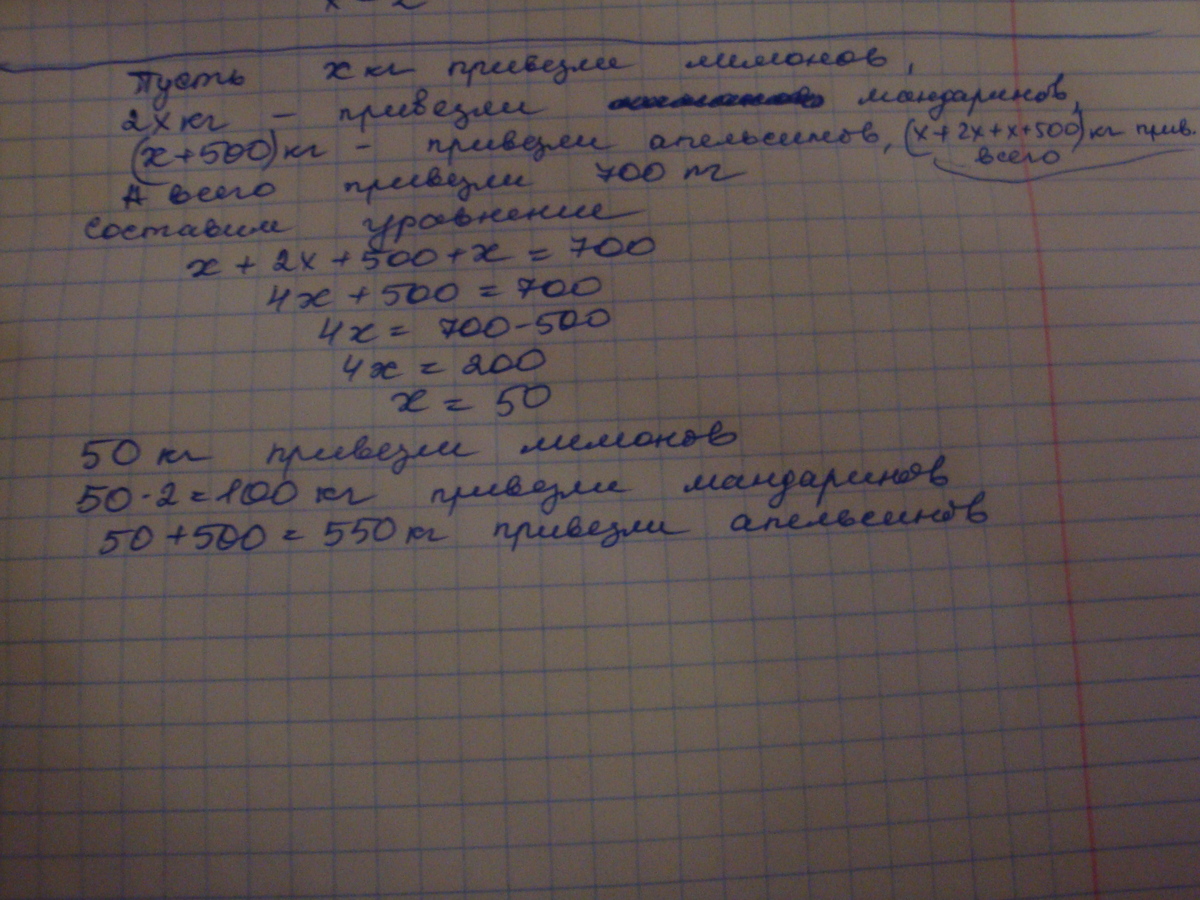 Пусть x кг привезли лимонов,
2x кг - привезли мандаринов,
(x+500) кг - привезли апельсинов, (x+2x+x+500) кг прив.
всего
А всего привезли 700 кг
Составим уравнение
x + 2x + 500 + x = 700
4x + 500 = 700
4x = 700-500
4x = 200
x = 50
50 кг привезли лимонов
50·2=100 кг привезли мандаринов
50+500 = 550 кг привезли апельсинов